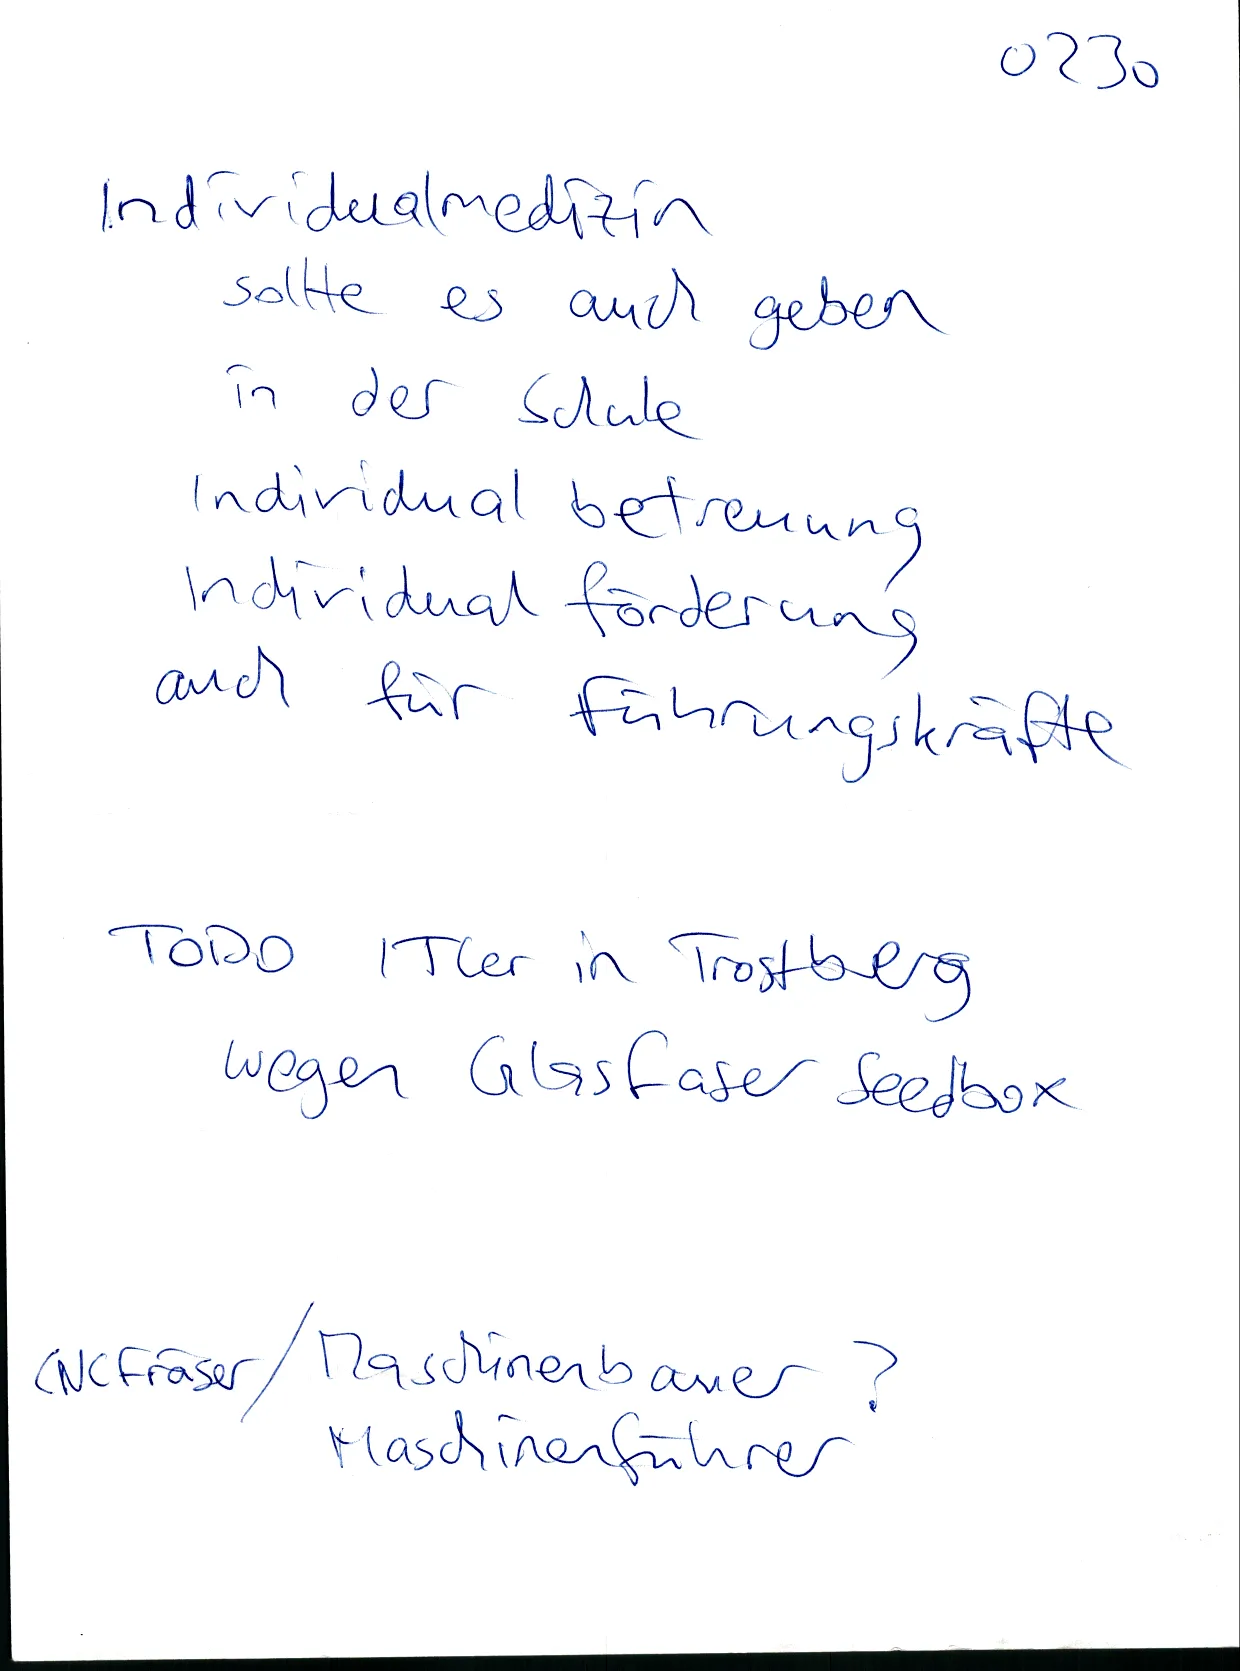 0230
Individualmedizin
sollte es auch geben
in der Schule
Individual betreuung
Individual förderung
auch für Führungskräfte
TODO ITler in Trostberg
wegen Glasfaser Seedbox
CNC Fräser / Maschinenbauer ?
Maschinenführer